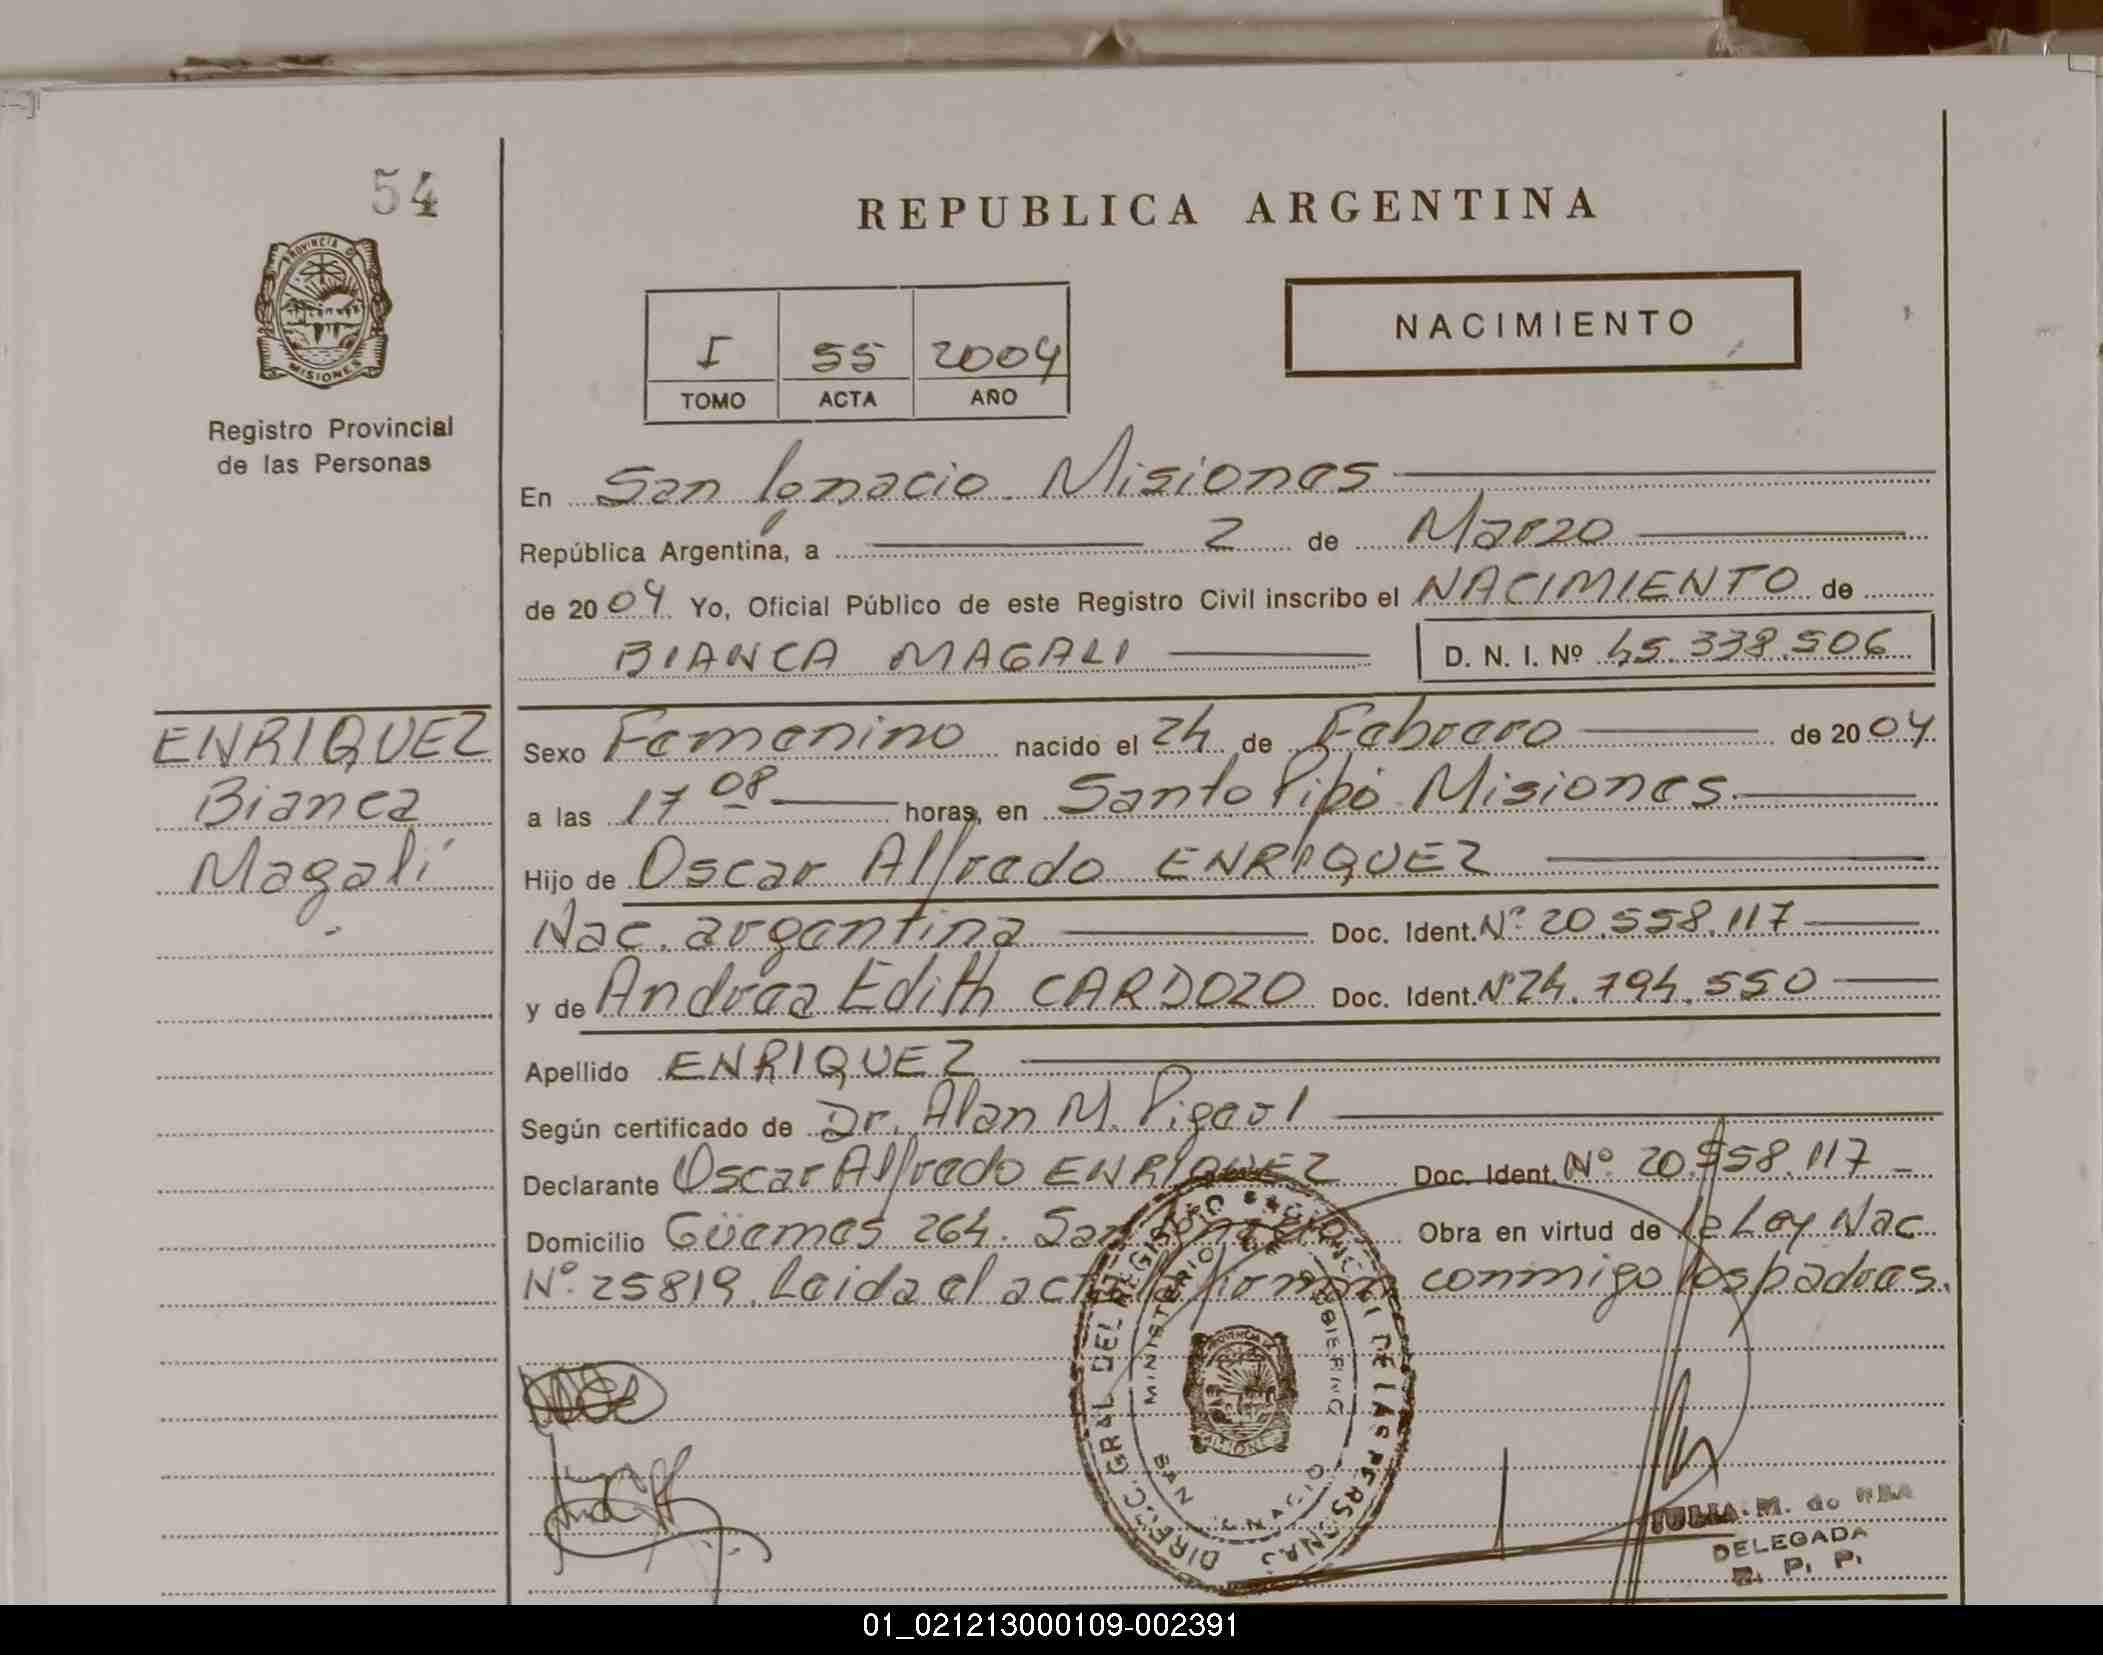 54
REPUBLICA ARGENTINA
PROVINCIA DE
MISIONES
Registro Provincial
de las Personas
I 55 2004
TOMO ACTA AÑO
NACIMIENTO
En San Ignacio Misiones
República Argentina, a 2 de Marzo
de 2004 Yo, Oficial Público de este Registro Civil inscribo el NACIMIENTO de
BIANCA MAGALI D. N. I. Nº 45.338.506
ENRIQUEZ
Bianca
Magalí
Sexo Femenino nacido el 24 de Febrero de 2004
a las 17 08 horas, en Santo Pipó Misiones
Hijo de Oscar Alfredo ENRIQUEZ
Nac. argentina Doc. Ident. Nº 20.558.117
y de Andrea Edith CARDOZO Doc. Ident. Nº 24.794.550
Apellido ENRIQUEZ
Según certificado de Dr. Alan M.
Declarante Oscar Alfredo ENRIQUEZ Doc. Ident. Nº 20.558.117
Domicilio Güemes 264. San Ignacio Obra en virtud de la Ley Nac
Nº 25819. Leida el acta la firman conmigo los padres.
DIRECC. GRAL DEL REGISTRO PROVINCIAL DE LAS PERSONAS
MINISTERIO DE GOBIERNO
SAN IGNACIO
JULIA M. de
DELEGADA
R. P. P.
01_021213000109-002391